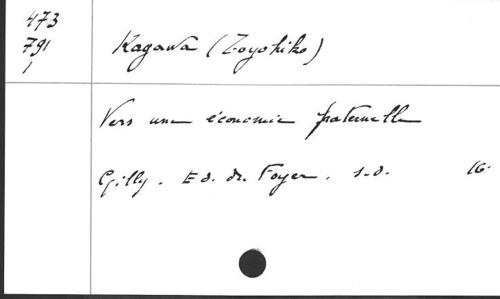 473
791
1
Kagawa (Toyohiko)
Vers une économie fraternelle
Gilly. Ed. du Foyer. s.d. 16°